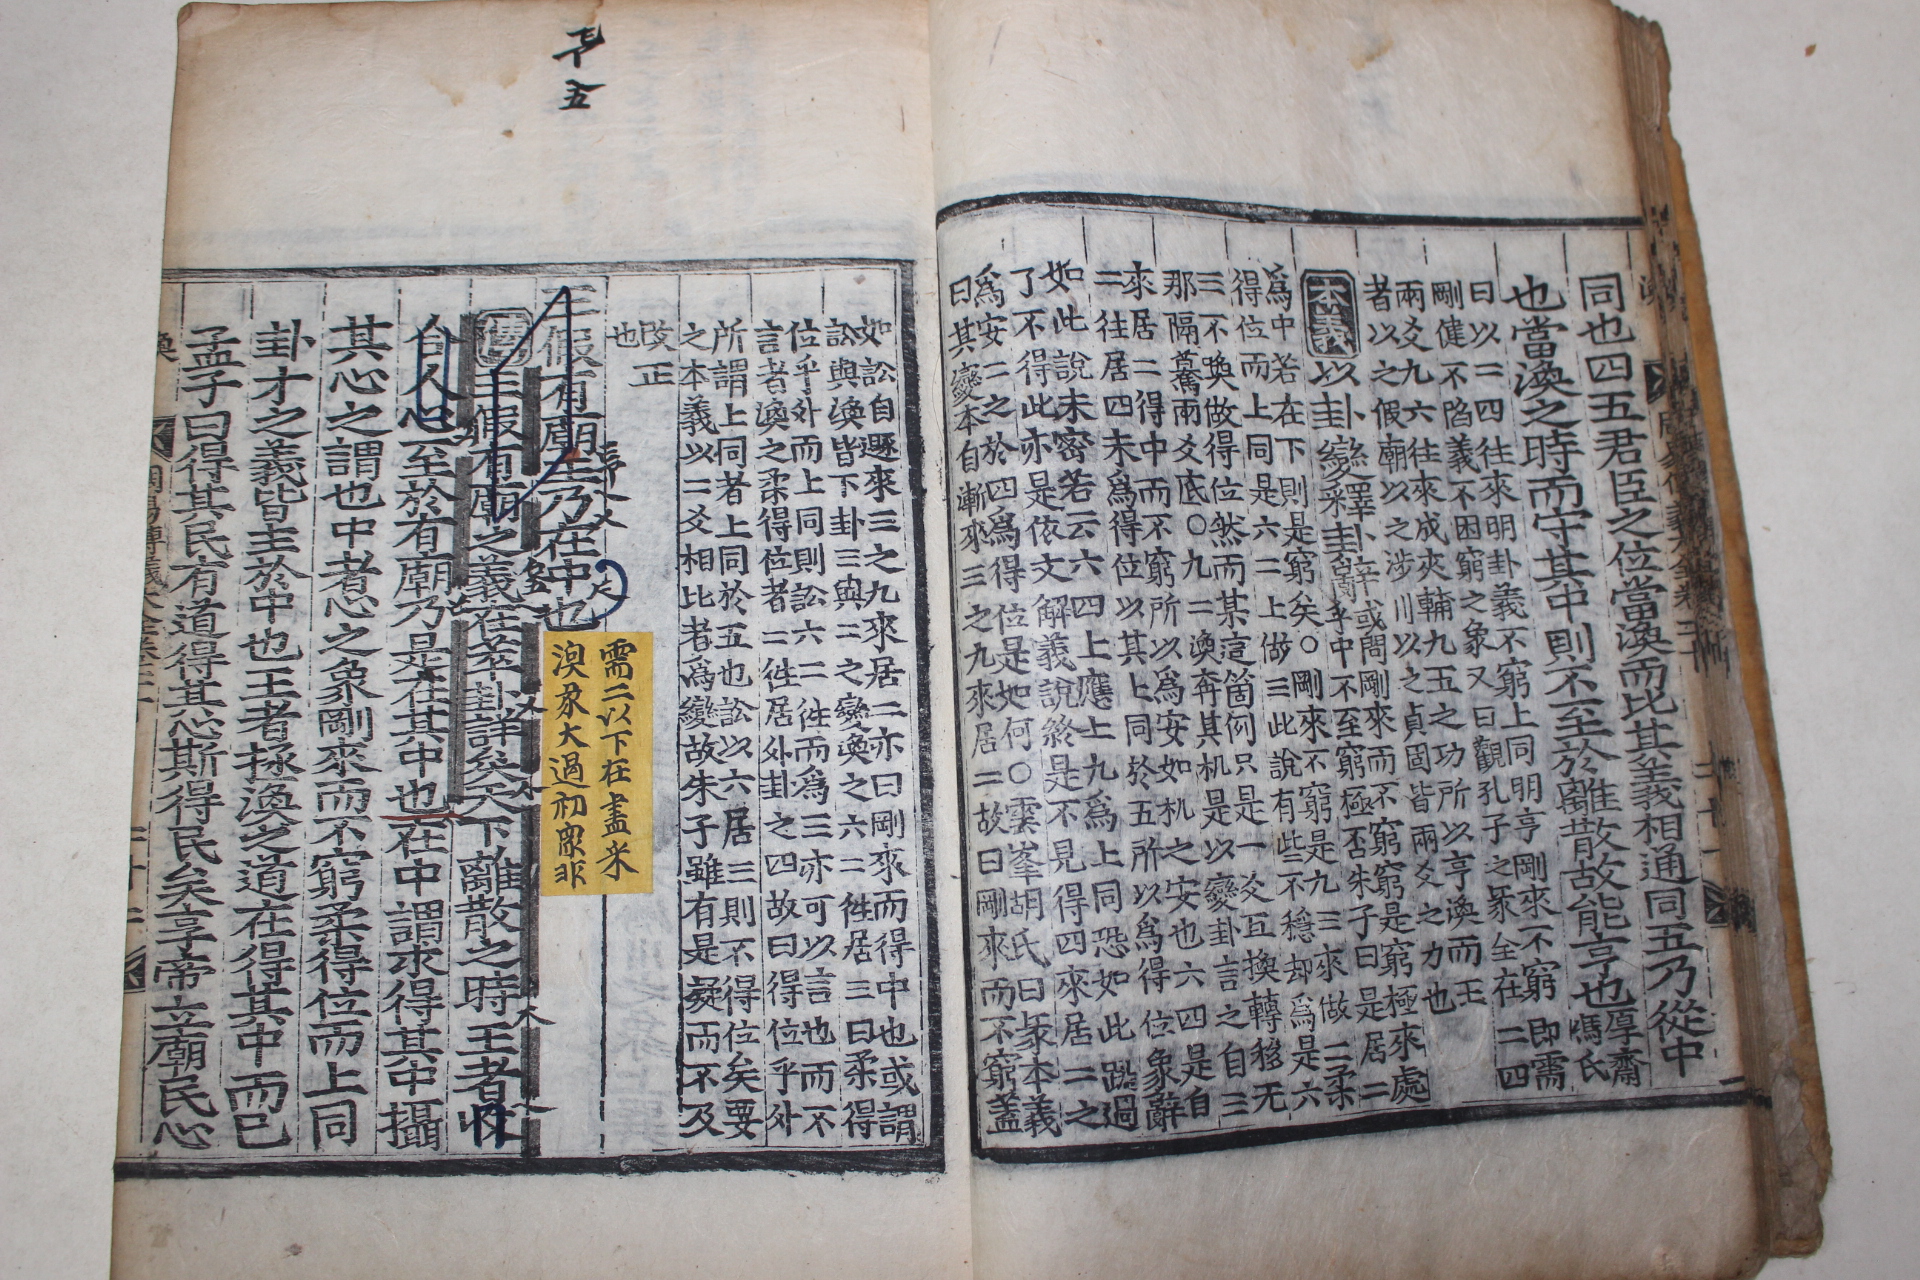 同也四五君臣之位當渙而比其義相通同五乃從中
也當渙之時而守其中則不至於離散故能亨也
厚齋
馮氏
曰以二四往來明卦義不窮上同明亨剛來不窮即需
剛健不陷義不困窮之象又曰觀孔子之彖全在二四
兩爻九六往來成夾輔九五之功所以亨渙而王
者以之假廟以之涉川以之貞固皆兩爻之力也
本義
以卦變釋卦辭
或問剛來而不窮窮是窮極來處
乎中不至窮極否朱子曰是居二
爲中若在下則是窮矣○剛來不窮是九三來做二柔
得位而上同是六二上做三此說有些不穩却爲是六
三不喚做得位然而某這箇例只是一爻互換轉移无
那隔驀兩爻底○九二渙奔其机是以變卦言之自三
來居二得中而不窮所以爲安如机之安也六四是自
二往居四未爲得位以其上同於五所以爲得位象辭
如此說未密若云六四上應上九爲上同恐如此跳過
了不得此亦是依文解義說終是不見得四來居二之
爲安二之於四爲得位是如何○雲峯胡氏曰彖本義
曰其變本自漸來三之九來居二故曰剛來而不窮蓋
如訟自遯來三之九來居二亦曰剛來而得中也或謂
訟與渙皆下卦三與二之變渙之六二徃居三曰柔得
位乎外而上同則訟六二徃而爲三亦可以言也而不
言者渙之柔得位者二徃居外卦之四故曰得位乎外
所謂上同者上同於五也訟以六居三則不得位矣要
之本義以二爻相比者爲變故朱子雖有是疑而不及
改正
也
王假有廟王乃在中也
傳
王假有廟之義在萃卦詳矣天下離散之時王者收
合人心至於有廟乃是在其中也在中謂求得其中攝
其心之謂也中者心之象剛來而不窮柔得位而上同
卦才之義皆主於中也王者拯渙之道在得其中而已
孟子曰得其民有道得其心斯得民矣享帝立廟民心
需二以下在盡米
渙
周易傳義大全卷之二十
二十二